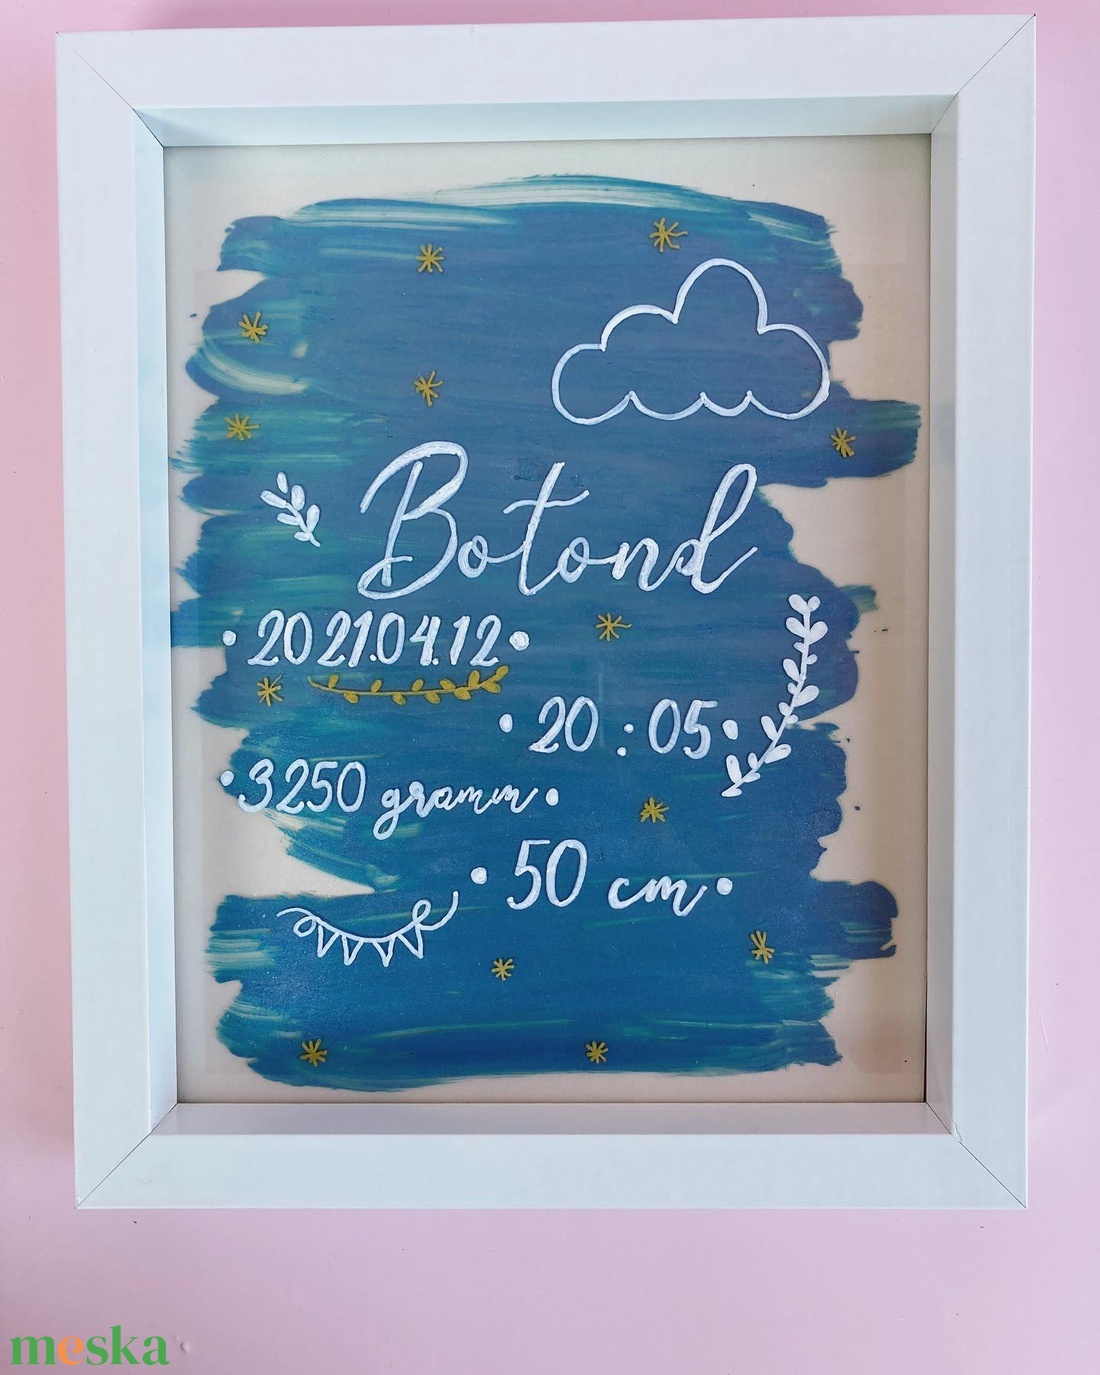 Botond
• 2021.04.12 •
• 20 : 05 •
• 3250 gramm •
• 50 cm •
meska